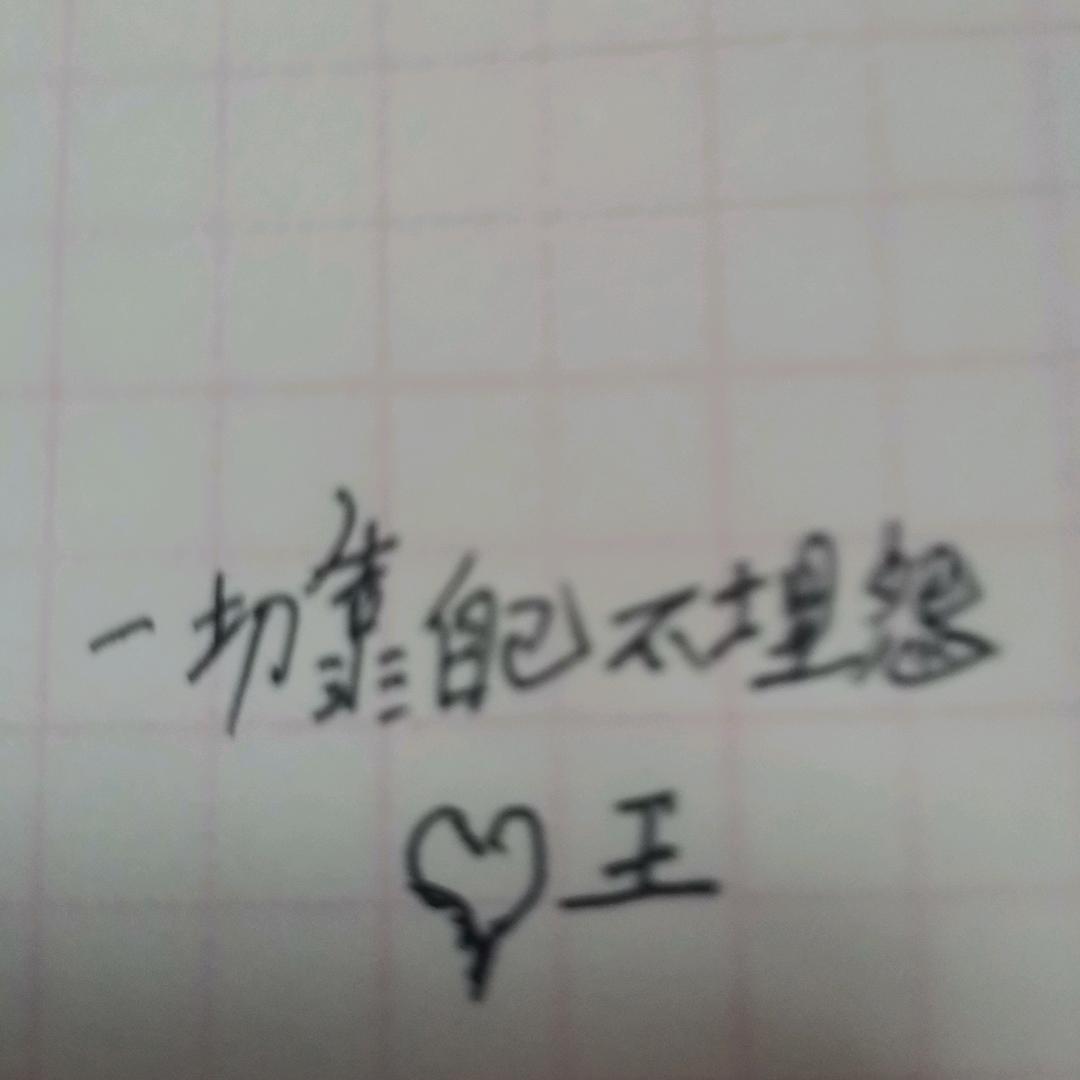 一切靠自己不埋怨
王